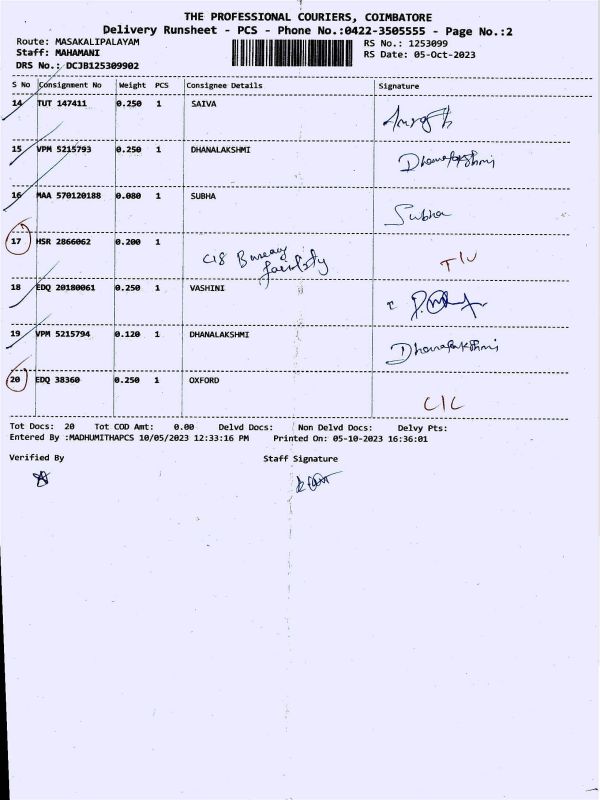 THE PROFESSIONAL COURIERS, COIMBATORE
Delivery Runsheet - PCS - Phone No.:0422-3505555 - Page No.:2
Route: MASAKALIPALAYAM
RS No.: 1253099
Staff: MAHAMANI
RS Date: 05-Oct-2023
DRS No.: DCJB125309902
S No Consignment No Weight PCS Consignee Details Signature
14 TUT 147411 0.250 1 SAIVA
15 VPM 5215793 0.250 1 DHANALAKSHMI
Dhanalakshmi
16 MAA 570120188 0.080 1 SUBHA
Subha
17 HSR 2866062 0.200 1
C18
18 EDQ 20180061 0.250 1 VASHINI
19 VPM 5215794 0.120 1 DHANALAKSHMI
Dhanalakshmi
20 EDQ 38360 0.250 1 OXFORD
C/C
Tot Docs: 20 Tot COD Amt: 0.00 Delvd Docs: Non Delvd Docs: Delvy Pts:
Entered By :MADHUMITHAPCS 10/05/2023 12:33:16 PM Printed On: 05-10-2023 16:36:01
Verified By Staff Signature